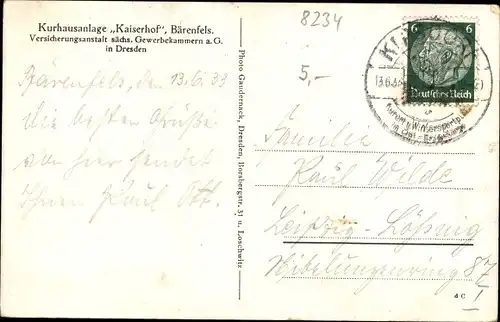 Kurhausanlage „Kaiserhof", Bärenfels.
Versicherungsanstalt sächs. Gewerbekammern a. G.
in Dresden
8234
5,-
Bärenfels, den 13.6.33
Die besten Grüße
von hier sendet
Ihnen Paul Ott.
Photo Gaudernack, Dresden, Borsbergstr. 31 u. Loschwitz
6 6
Deutsches Reich
13.6.33
Kurort u. Wintersportpl.
Familie
Paul Wilde
Leipzig-Lößnig
Nibelungenring 87
I
4 C